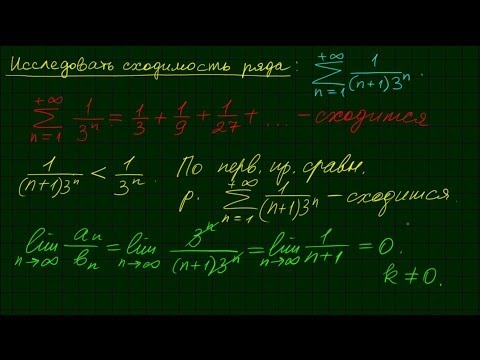 Исследовать сходимость ряда: \sum_{n=1}^{+∞} \frac{1}{(n+1)3^n}.
\sum_{n=1}^{+∞} \frac{1}{3^n} = \frac{1}{3} + \frac{1}{9} + \frac{1}{27} + .... – сходится
\frac{1}{(n+1)3^n} < \frac{1}{3^n}. По перв. пр. сравн.
р. \sum_{n=1}^{+∞} \frac{1}{(n+1)3^n} – сходится.
\lim_{n→∞} \frac{a_n}{b_n} = \lim_{n→∞} \frac{3^n}{(n+1)3^n} = \lim_{n→∞} \frac{1}{n+1} = 0.
k ≠ 0.